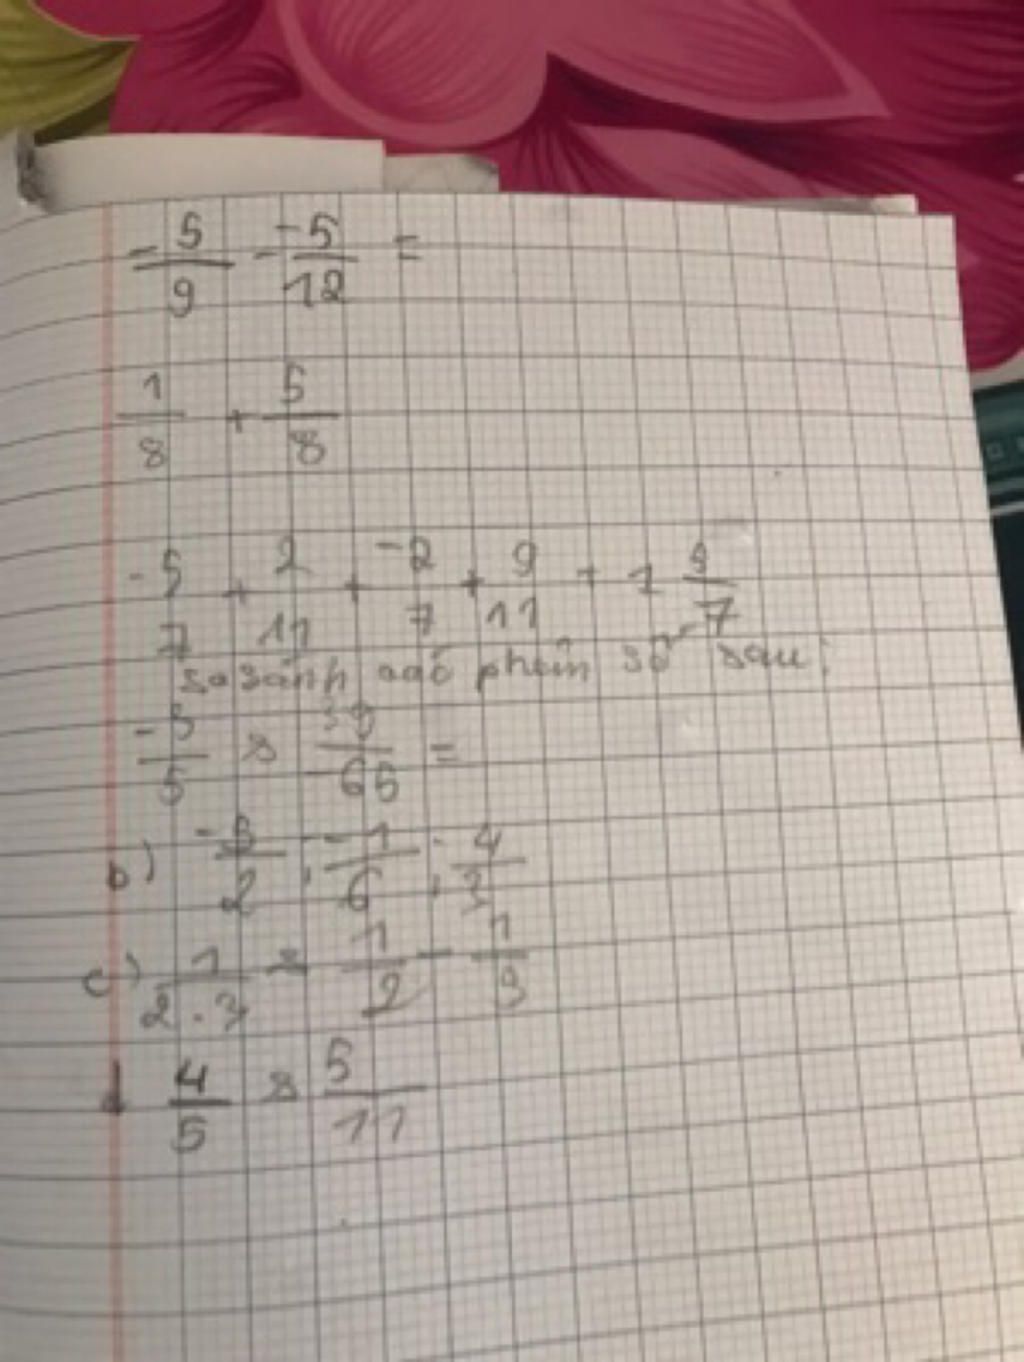 -5/9 - -5/12 =
1/8 + 5/8
-5/7 + 2/11 + -2/7 + 9/11 + 1 5/7
so sánh các phân số sau:
-3/5 & 39/-65 =
b) -3/2 ; -1/6 ; 4/3
c) 1/2.3 & 1/2 - 1/3
d 4/5 & 5/11